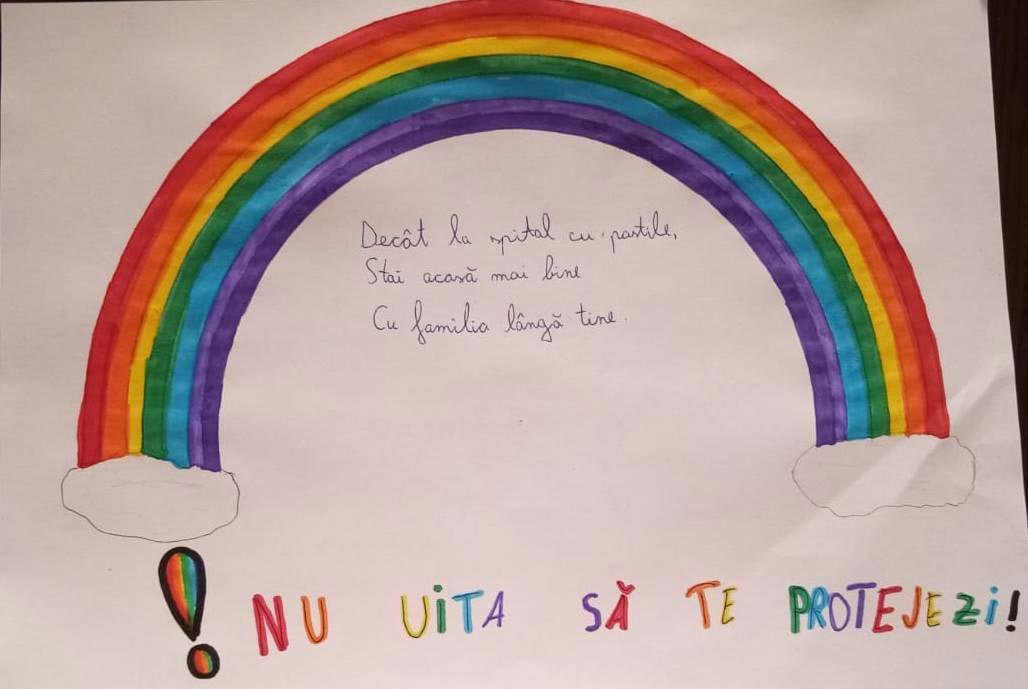 Decât la spital cu pastile,
Stai acasă mai bine
Cu familia lângă tine.
! NU UiTA SĂ TE PROTEJEZi!